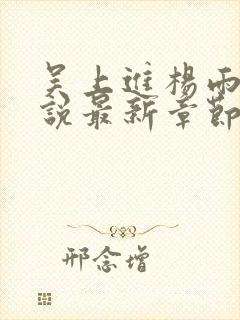 吴上進楊雨
說最新章節
邢念增